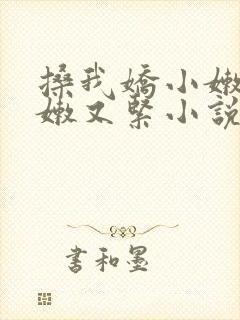 搡我嬌小嫩
嫩又緊小說
書和墨